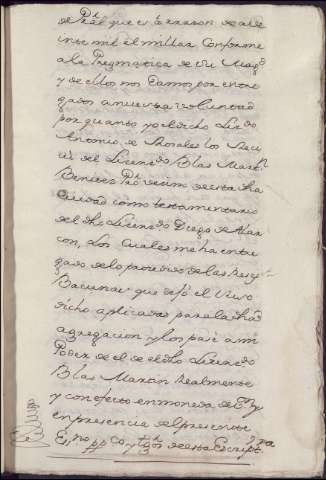 de Real que es á rrazon de a ve
inte mil el millar Conforme
a la Pregmatica de Su Magd
y de ellos nos Damos por entre
gados a nuestra voluntad
por quanto yo el dicho Licdo
Antonio de Morales los Recu
ui del Licencdo Blas Martin
Benites Pro vecino de esta dha
Ciudad como testamentario
del dho Licencdo Diego de Alar
con, Los Cuales me ha entre
gado de lo prosedido de las
que dejó el Suso
dicho aplicadas para la dha
agregacion y los pasó a mi
Poder de el de el dho Licencdo
Blas Martin Realmente
y con efecto en moneda de
en presencia del presente
Esno ppco y tgos de esta Escripra